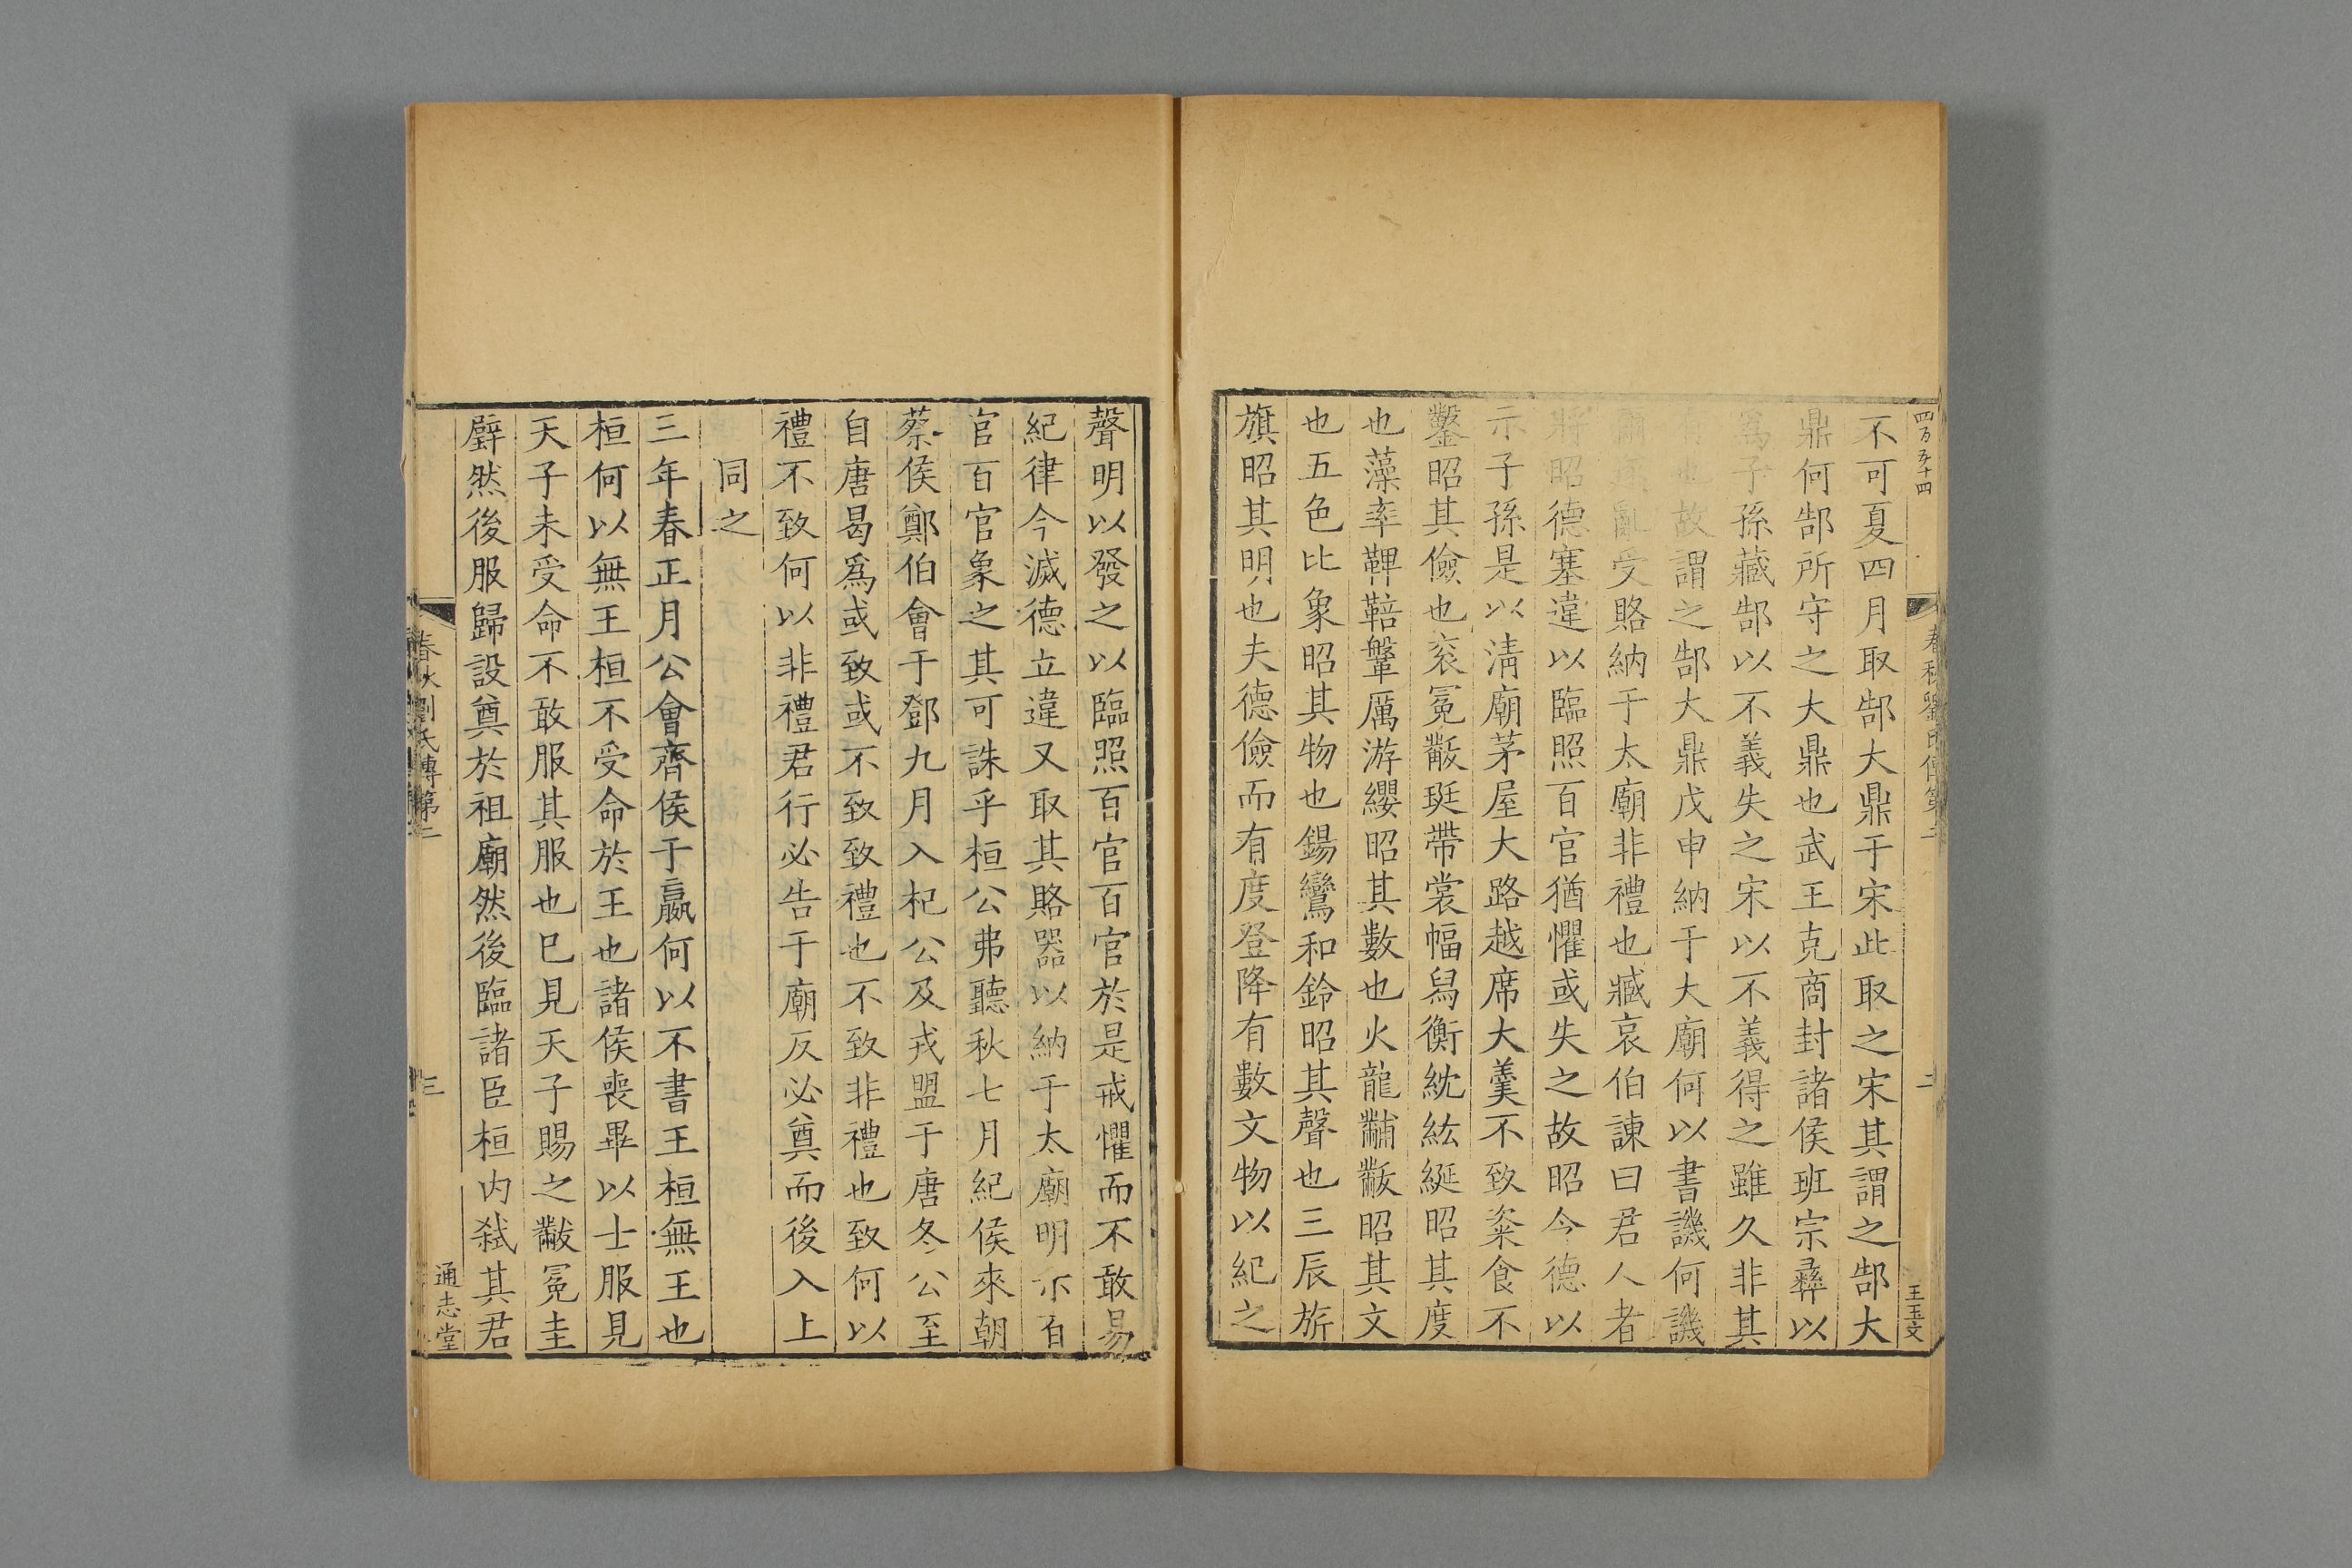 四万五十四
春秋劉氏傳第二
二
王玉文
不可夏四月取郜大鼎于宋此取之宋其謂之郜大
鼎何郜所守之大鼎也武王克商封諸侯班宗彞以
爲子孫藏郜以不義失之宋以不義得之雖久非其
也故謂之郜大鼎戊申納于大廟何以書譏何譏
亂受賂納于太廟非禮也臧哀伯諫曰君人者
將昭德塞違以臨照百官猶懼或失之故昭令德以
示子孫是以淸廟茅屋大路越席大羹不致粢食不
鑿昭其儉也衮冕黻珽帶裳幅舄衡紞紘綖昭其度
也藻率鞞鞛鞶厲游纓昭其數也火龍黼黻昭其文
也五色比象昭其物也鍚鸞和鈴昭其聲也三辰旂
旗昭其明也夫德儉而有度登降有數文物以紀之
聲明以發之以臨照百官百官於是戒懼而不敢易
紀律今滅德立違又取其賂器以納于太廟明示百
官百官象之其可誅乎桓公弗聽秋七月紀侯來朝
蔡侯鄭伯會于鄧九月入杞公及戎盟于唐冬公至
自唐曷爲或致或不致致禮也不致非禮也致何以
禮不致何以非禮君行必告于廟反必奠而後入上
同之
三年春正月公會齊侯于嬴何以不書王桓無王也
桓何以無王桓不受命於王也諸侯喪畢以士服見
天子未受命不敢服其服也巳見天子賜之黻冕圭
璧然後服歸設奠於祖廟然後臨諸臣桓内弑其君
春秋劉氏傳第二
三
通志堂